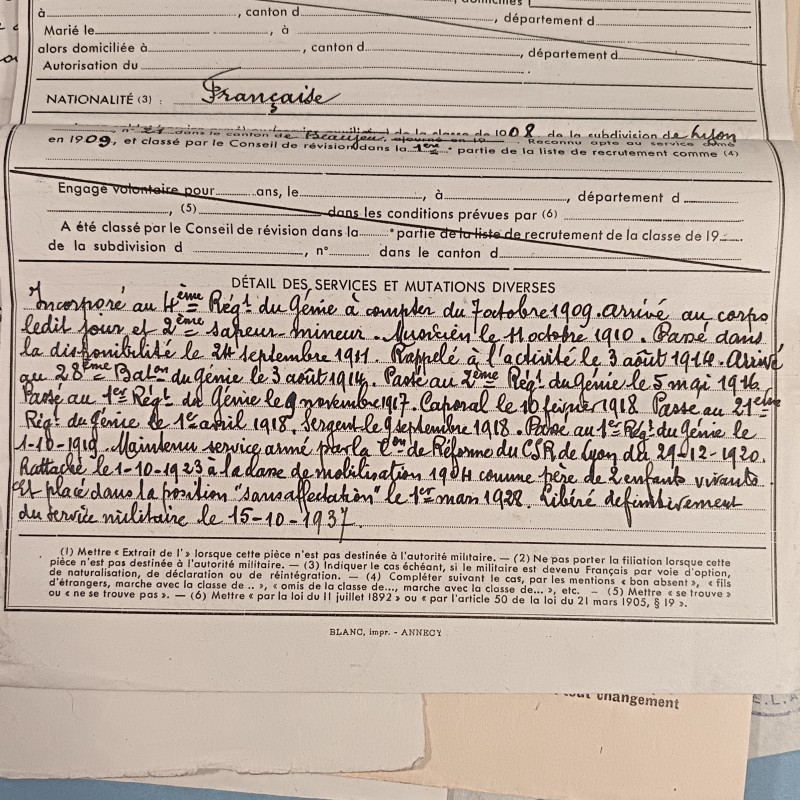 à, canton d, département d
Marié le, à
alors domiciliée à, canton d, département d
Autorisation du
NATIONALITÉ (3) : Française
n° 27 dans le canton de Beaujeu, ajourné en 19 de la classe de 1908 de la subdivision de Lyon
en 1909, et classé par le Conseil de révision dans la 1ère partie de la liste de recrutement comme (4)
Engagé volontaire pour ans, le, à, département d
, (5) dans les conditions prévues par (6)
A été classé par le Conseil de révision dans la partie de la liste de recrutement de la classe de 19
de la subdivision d, n° dans le canton d
DÉTAIL DES SERVICES ET MUTATIONS DIVERSES
Incorporé au 4ème Régt du Génie à compter du 7 octobre 1909. arrivé au corps
ledit jour et 2ème sapeur mineur. Musicien le 11 octobre 1910. Passé dans
la disponibilité le 24 septembre 1911. Rappelé à l'activité le 3 août 1914. Arrivé
au 28ème Baton du génie le 3 août 1914. Passé au 2ème Régt du génie le 5 mai 1916
Passé au 1er Régt du Génie le 9 novembre 1917. Caporal le 10 février 1918 Passé au 21ème
Régt du Génie le 1er avril 1918. Sergent le 9 septembre 1918. Passé au 1er Régt du Génie le
1-10-1919. Maintenu service armé par la Con de Réforme du CSR de Lyon du 29-12-1920.
Rattaché le 1-10-1923 à la classe de mobilisation 1904 comme père de 2 enfants vivants.
Est placé dans la position "sans affectation" le 1er mars 1928. Libéré définitivement
du service militaire le 15-10-1937.
(1) Mettre « Extrait de l' » lorsque cette pièce n'est pas destinée à l'autorité militaire. — (2) Ne pas porter la filiation lorsque cette
pièce n'est pas destinée à l'autorité militaire. — (3) Indiquer le cas échéant, si le militaire est devenu Français par voie d'option,
de naturalisation, de déclaration ou de réintégration. — (4) Compléter suivant le cas, par les mentions « bon absent », « fils
d'étrangers, marche avec la classe de... », « omis de la classe de..., marche avec la classe de... », etc. — (5) Mettre « se trouve »
ou « ne se trouve pas ». — (6) Mettre « par la loi du 11 juillet 1892 » ou « par l'article 50 de la loi du 21 mars 1905, § 19 ».
BLANC, impr. - ANNECY
tout changement
E.L.A